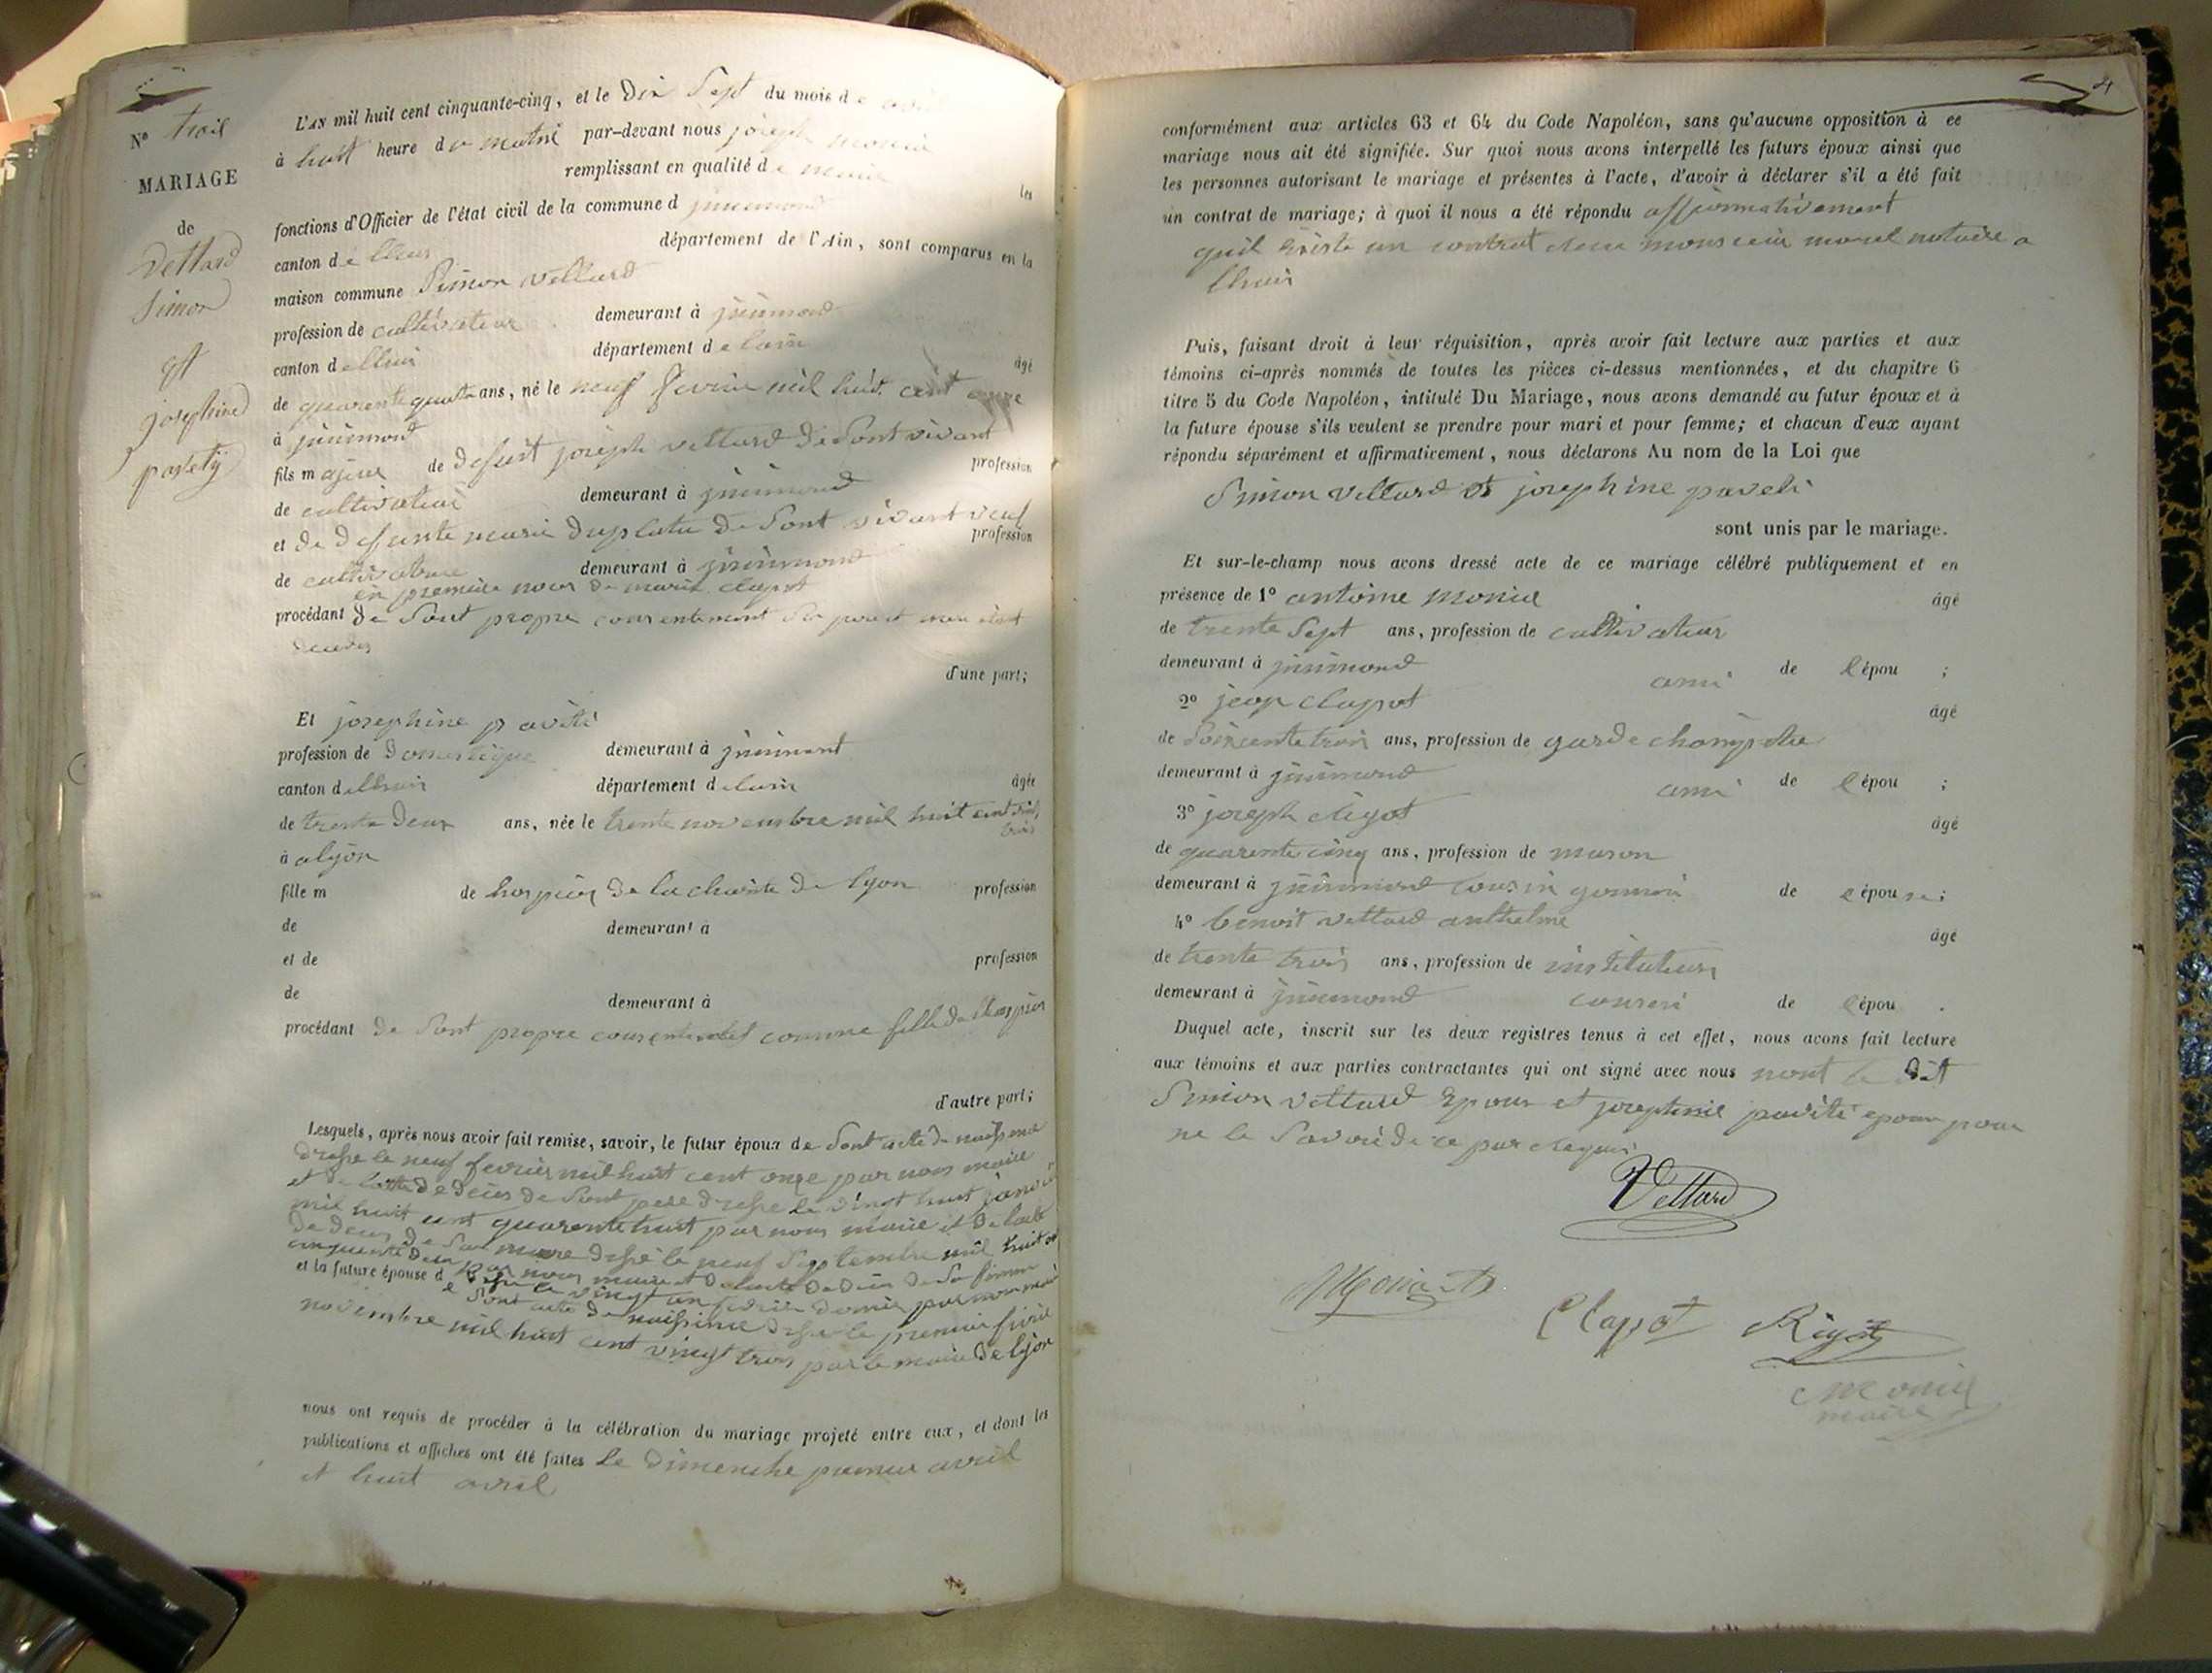 N° trois
MARIAGE
de
Vettard
Simon
et
josephine
pavety
L'AN mil huit cent cinquante-cinq, et le Dix Sept du mois de avril
à huit heure du matin par-devant nous joseph monin
remplissant en qualité de maire les
fonctions d'Officier de l'état civil de la commune d
canton de lhuis département de l'Ain, sont comparus en la
maison commune Simon vettard
profession de cultivateur demeurant à
canton d elhuis département d elain âgé
de quarente quatre ans, né le neuf fevrier mil huit cent onze
à
fils majeur de defunt joseph vettard de sont vivant profession
de cultivateur demeurant à
et de defunte marie duplatre de Sont vivant veuf profession
de cultivatrice demeurant à
en premiere noces de marie clapot
procédant de Sont propre consentement Sa pere et mere etant
decedes
d'une part;
Et josephine pavéti
profession de Domestique demeurant à
canton d elhuis département d elain âgée
de trente deux ans, née le trente novembre mil huit cent vint
trois
à alyon
fille m de hospice de la charite de lyon profession
de demeurant à
et de profession
de demeurant à
procédant de Sont propre consentement comme fille de lhospice
d'autre part;
Lesquels, après nous avoir fait remise, savoir, le futur époux de Sont acte de naissance
dresse le neuf fevrier mil huit cent onze par nous maire
et de lacte de deces de Sont pere dresse le vingt huit janvier
mil huit cent quarente huit par nous maire et de lacte
de deces de Sa mere dressé le neuf Septembre mil huit cent
cinquante deux par nous maire et de lacte de deces de Sa femme
dressé le vingt un fevrier dernier par nous maire
et la future épouse d e Sont acte de naissence dressé le premier
novembre mil huit cent vingt trois par le maire de lyon
nous ont requis de procéder à la célébration du mariage projeté entre eux, et dont les
publications et affiches ont été faites Le Dimenche premier avril
et huit avril
4
conformément aux articles 63 et 64 du Code Napoléon, sans qu'aucune opposition à ce
mariage nous ait été signifiée. Sur quoi nous avons interpellé les futurs époux ainsi que
les personnes autorisant le mariage et présentes à l'acte, d'avoir à déclarer s'il a été fait
un contrat de mariage; à quoi il nous a été répondu affirmativement
quil existe un contrat monsieur morel notaire a
lhuis
Puis, faisant droit à leur réquisition, après avoir fait lecture aux parties et aux
témoins ci-après nommés de toutes les pièces ci-dessus mentionnées, et du chapitre 6
titre 5 du Code Napoléon, intitulé Du Mariage, nous avons demandé au futur époux et à
la future épouse s'ils veulent se prendre pour mari et pour femme; et chacun d'eux ayant
répondu séparément et affirmativement, nous déclarons Au nom de la Loi que
Simon vettard et josephine paveti
sont unis par le mariage.
Et sur-le-champ nous avons dressé acte de ce mariage célébré publiquement et en
présence de 1° antoine monin âgé
de trente Sept ans, profession de cultivateur
demeurant à ami de l épou ;
2° jean clapot âgé
de Soixente trois ans, profession de garde champetre
demeurant à ami de l épou ;
3° joseph rigot âgé
de quarente cinq ans, profession de mason
demeurant à cousin germain de l épou se;
4° benoit vettard anthelme âgé
de trente trois ans, profession de instituteur
demeurant à cousin de l épou .
Duquel acte, inscrit sur les deux registres tenus à cet effet, nous avons fait lecture
aux témoins et aux parties contractantes qui ont signé avec nous nont le dit
Simon vettard Epoux et josephine pavéti epouse pour
ne le Savoir de ce par requis
Vettard
Monin
Clapot Rigot
Monin
maire